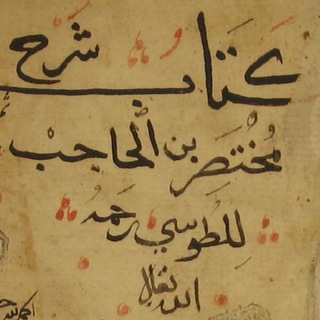 كتاب شرح
مختصر بن الحاجب
للطوسي رحمه
الله تعالى